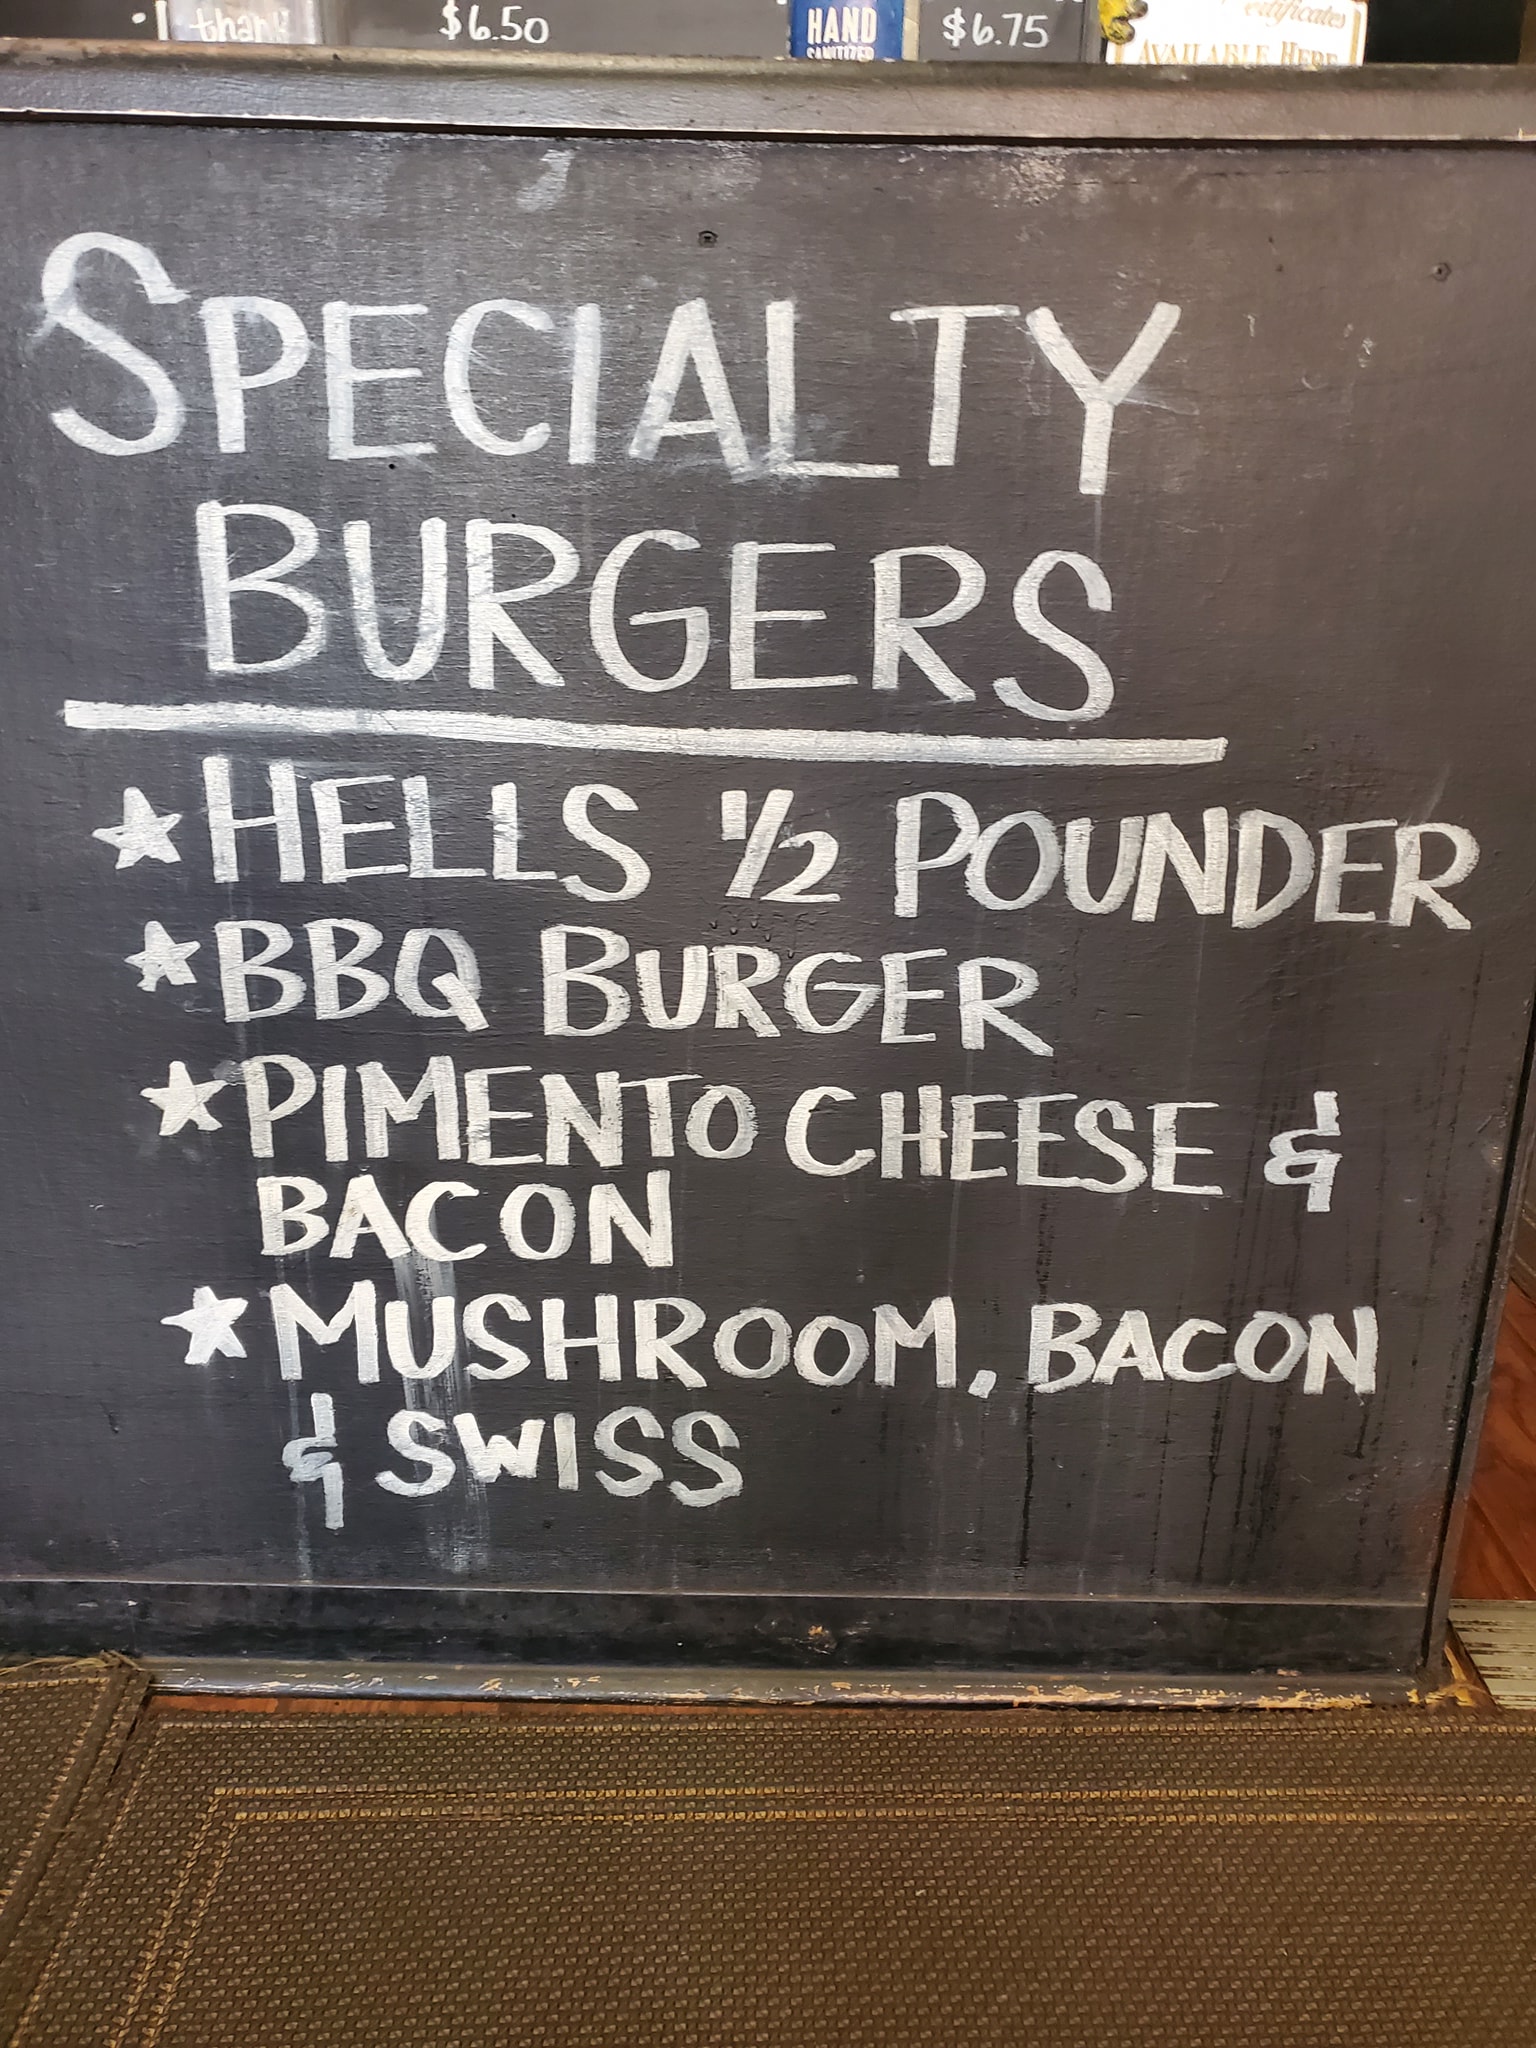 thank
$6.50
HAND
SANITIZER
$6.75
AVAILABLE HERE
SPECIALTY
BURGERS
HELLS 1/2 POUNDER
BBQ BURGER
PIMENTO CHEESE &
BACON
MUSHROOM, BACON
& SWISS